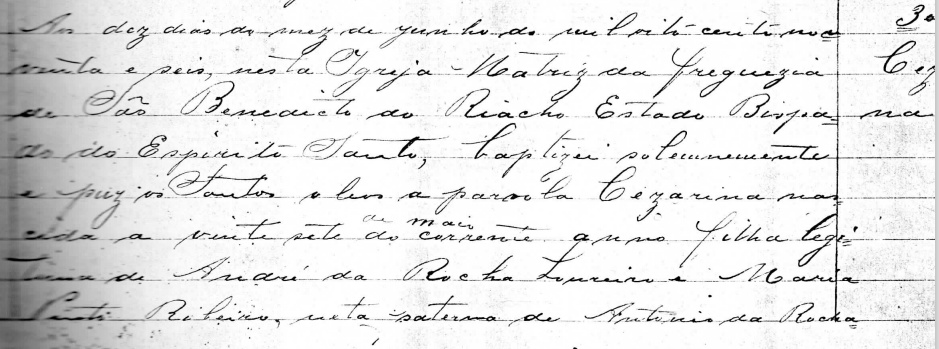 Aos dez dias do mez de junho do mil oito cento no=
venta e seis, nesta Igreja-Matriz da freguezia
de São Benedicto do Riacho Estado Bispa=
do do Espirito Santo, baptizei solemnemente
e puz os Santos oleos a parvola Cezarina nas=
cida a vinte sete do corrente anno filha legi=
de maio
tima de André da Rocha Loureiro e Maria
Ribeiro, neta paterna de Antonio da Rocha=
3o
Cez
na